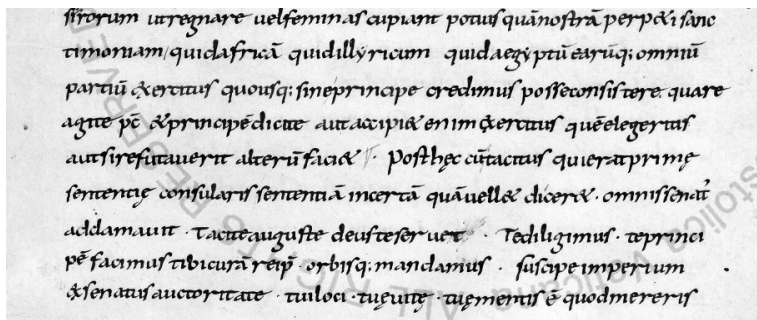 strorum ut regnare vel feminas cupiant potius quā nostrā perpeti sanc
timoniam, quid africā quid illyricum quid aegyptū earūq; omniū
partiū & exercitus quousq; sine principe credimus posse consistere. quare
agite pc̄ & principē dicite aut accipi& enim exercitus quē elegeritis
aut si refutaverit alterū faci& . Post hęc cū tacitus qui erat primę
sententię consularis sententiā incertā quā vell& dicer& . omnis senat᾽
adclamavit . Tacite auguste deus te servet . Te diligimus . te princi
pē facimus tibi curā reip̄ . orbisq; mandamus . suscipe imperium
& senatus auctoritate . tui loci . tuę vitę . tuę mentis ē quod mereris
RESERVED
ALL RIGHTS
Apostolica Vaticana